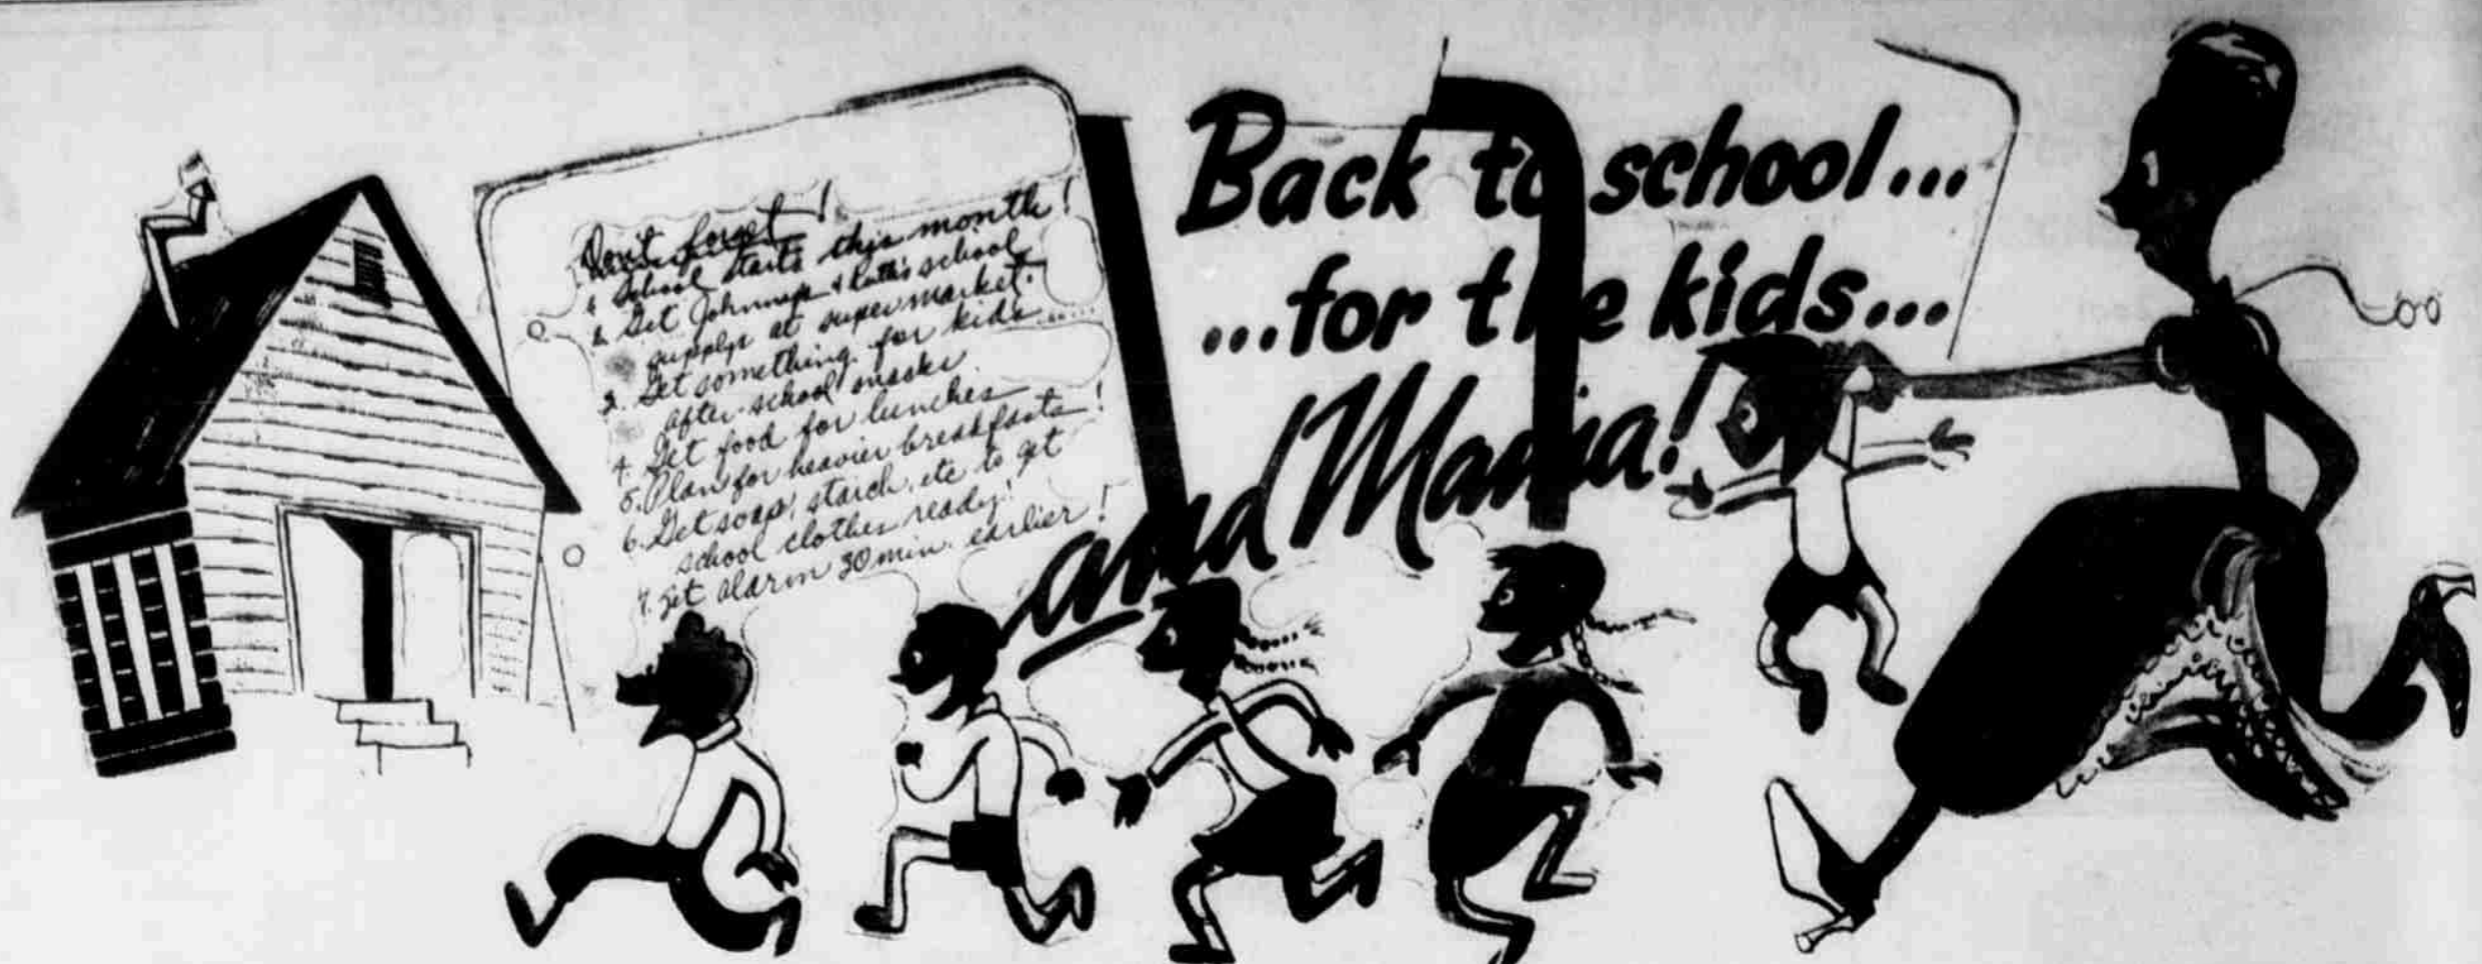 Don't forget!
1. School starts this month!
2. Get Johnny's & Ruth's school
supplys at supermarket.
3. Get something for kids
after-school snacks
4. Get food for lunches
5. Plan for heavier breakfasts!
6. Get soap, starch, etc to get
school clothes ready!
7. Set alarm 30 min. earlier!
Back to school...
...for the kids...
and Mama!